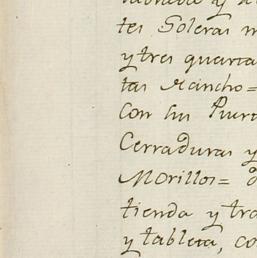 labrada y de
tes Soleras m
y tres quarta
tas Rancho=
Con su Puert
Cerraduras y
Morillos=
tienda y tra
y tableta, co